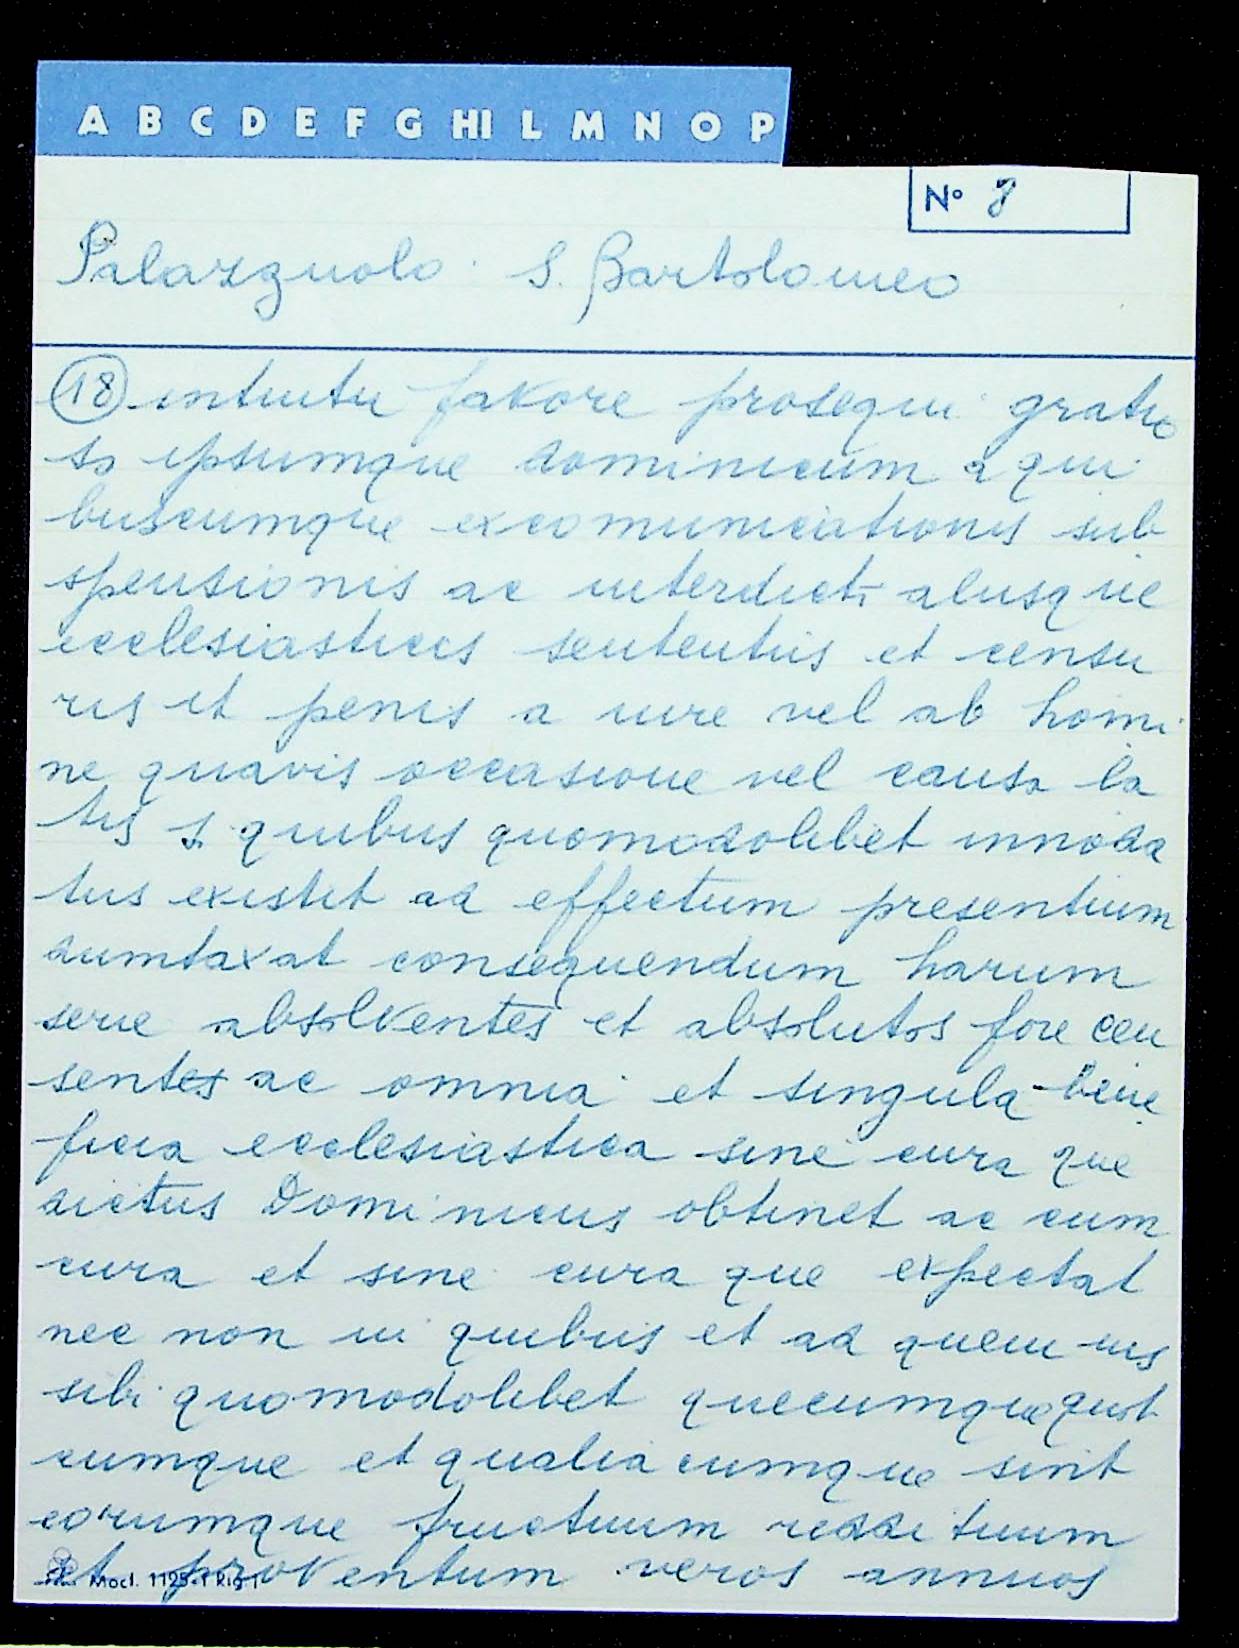 A B C D E F G HI L M N O P
N° 8
Palazzuolo S. Bartolomeo
18 intuitu favore prosequi gratio
so ipsumque dominicum a qui
buscumque excomunicationis sub
spensionis ac interdicti aliisque
ecclesiasticis sententiis et censu
ris et penis a iure vel ab homi
ne quavis occasione vel causa la
tis s. quibus quomodolibet innoda
tus existit ad effectum presentium
dumtaxat consequendum harum
serie absolventes et absolutos fore cen
sentes ac omnia et singula bene
ficia ecclesiastica sine cura que
dictus Dominicus obtinet ac cum
cura et sine cura que expectat
nec non in quibus et ad quem ius
sibi quomodolibet quecumque quot
cumque et qualiacumque sint
eorumque fructuum reddituum
et proventum veros annuos
Mod. 1125-1 Rig